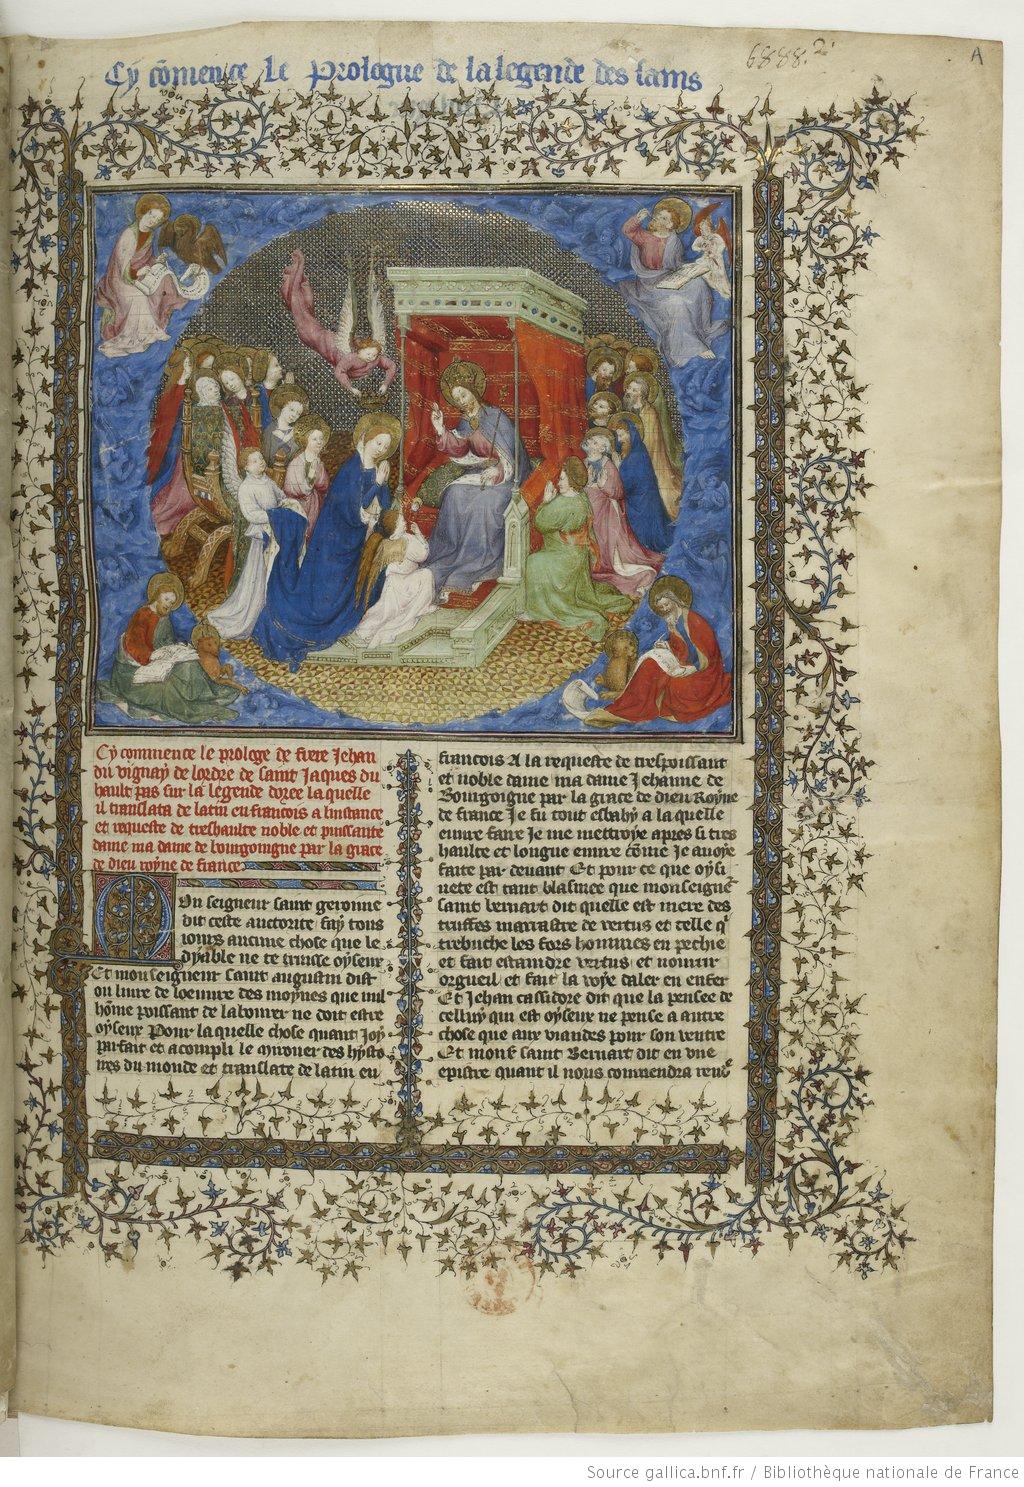 Cy cõmence Le Prologue de la legende des sains
6888.2.
A
Cy commence le prologe de frere Jehan
du vignay de lordre de saint Jaques du
hault pas sur la legende doree la quelle
il translata de latin en francois a linstance
et requeste de treshaulte noble et puissante
dame ma dame de bourgoingne par la grace
de dieu royne de france
Mon seigneur saint geronne
dit ceste auctorite fay tous
iours aucune chose que le
dyable ne te truisse oyseux
Et monseigneur saint augustin dist
ou liure de loeuure des moynes que nul
hõme poissant de labourer ne doit estre
oyseux Pour la quelle chose quant Joy
parfait et acompli le mirouer des hysto
ires du monde et translate de latin en
francois A la requeste de trespoissant
et noble dame ma dame Jehanne de
Bourgoigne par la grace de dieu Royne
de france Je fu tout esbahy a la quelle
euure faire Je me mettroye apres si tres
haulte et longue euure cõme Je auoye
faite par deuant Et pour ce que oysi
uete est tant blasmee que monseign̄r
saint bernart dit quelle est mere des
truffes marrastre de vertus et celle q̃
trebuche les fors hommes en pechie
et fait estaindre vertus et nourrir
orgueil et fait la voye daler en enfer
Et Jehan cassidore dit que la pensee de
celluy qui est oyseux ne pense a autre
chose que aux viandes pour son ventre
Et mons̃ saint Bernart dit en vne
epistre quant il nous conuendra ren̄
Source gallica.bnf.fr / Bibliothèque nationale de France